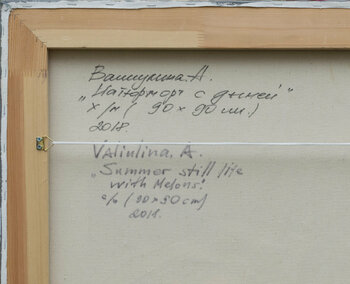 Валиулина. А.
„Натюрморт с дыней"
х/м ( 90 х 90 см.)
2018.
Valiulina, A.
„Summer still life
with Melons."
c/o (90×90 cm)
2018.